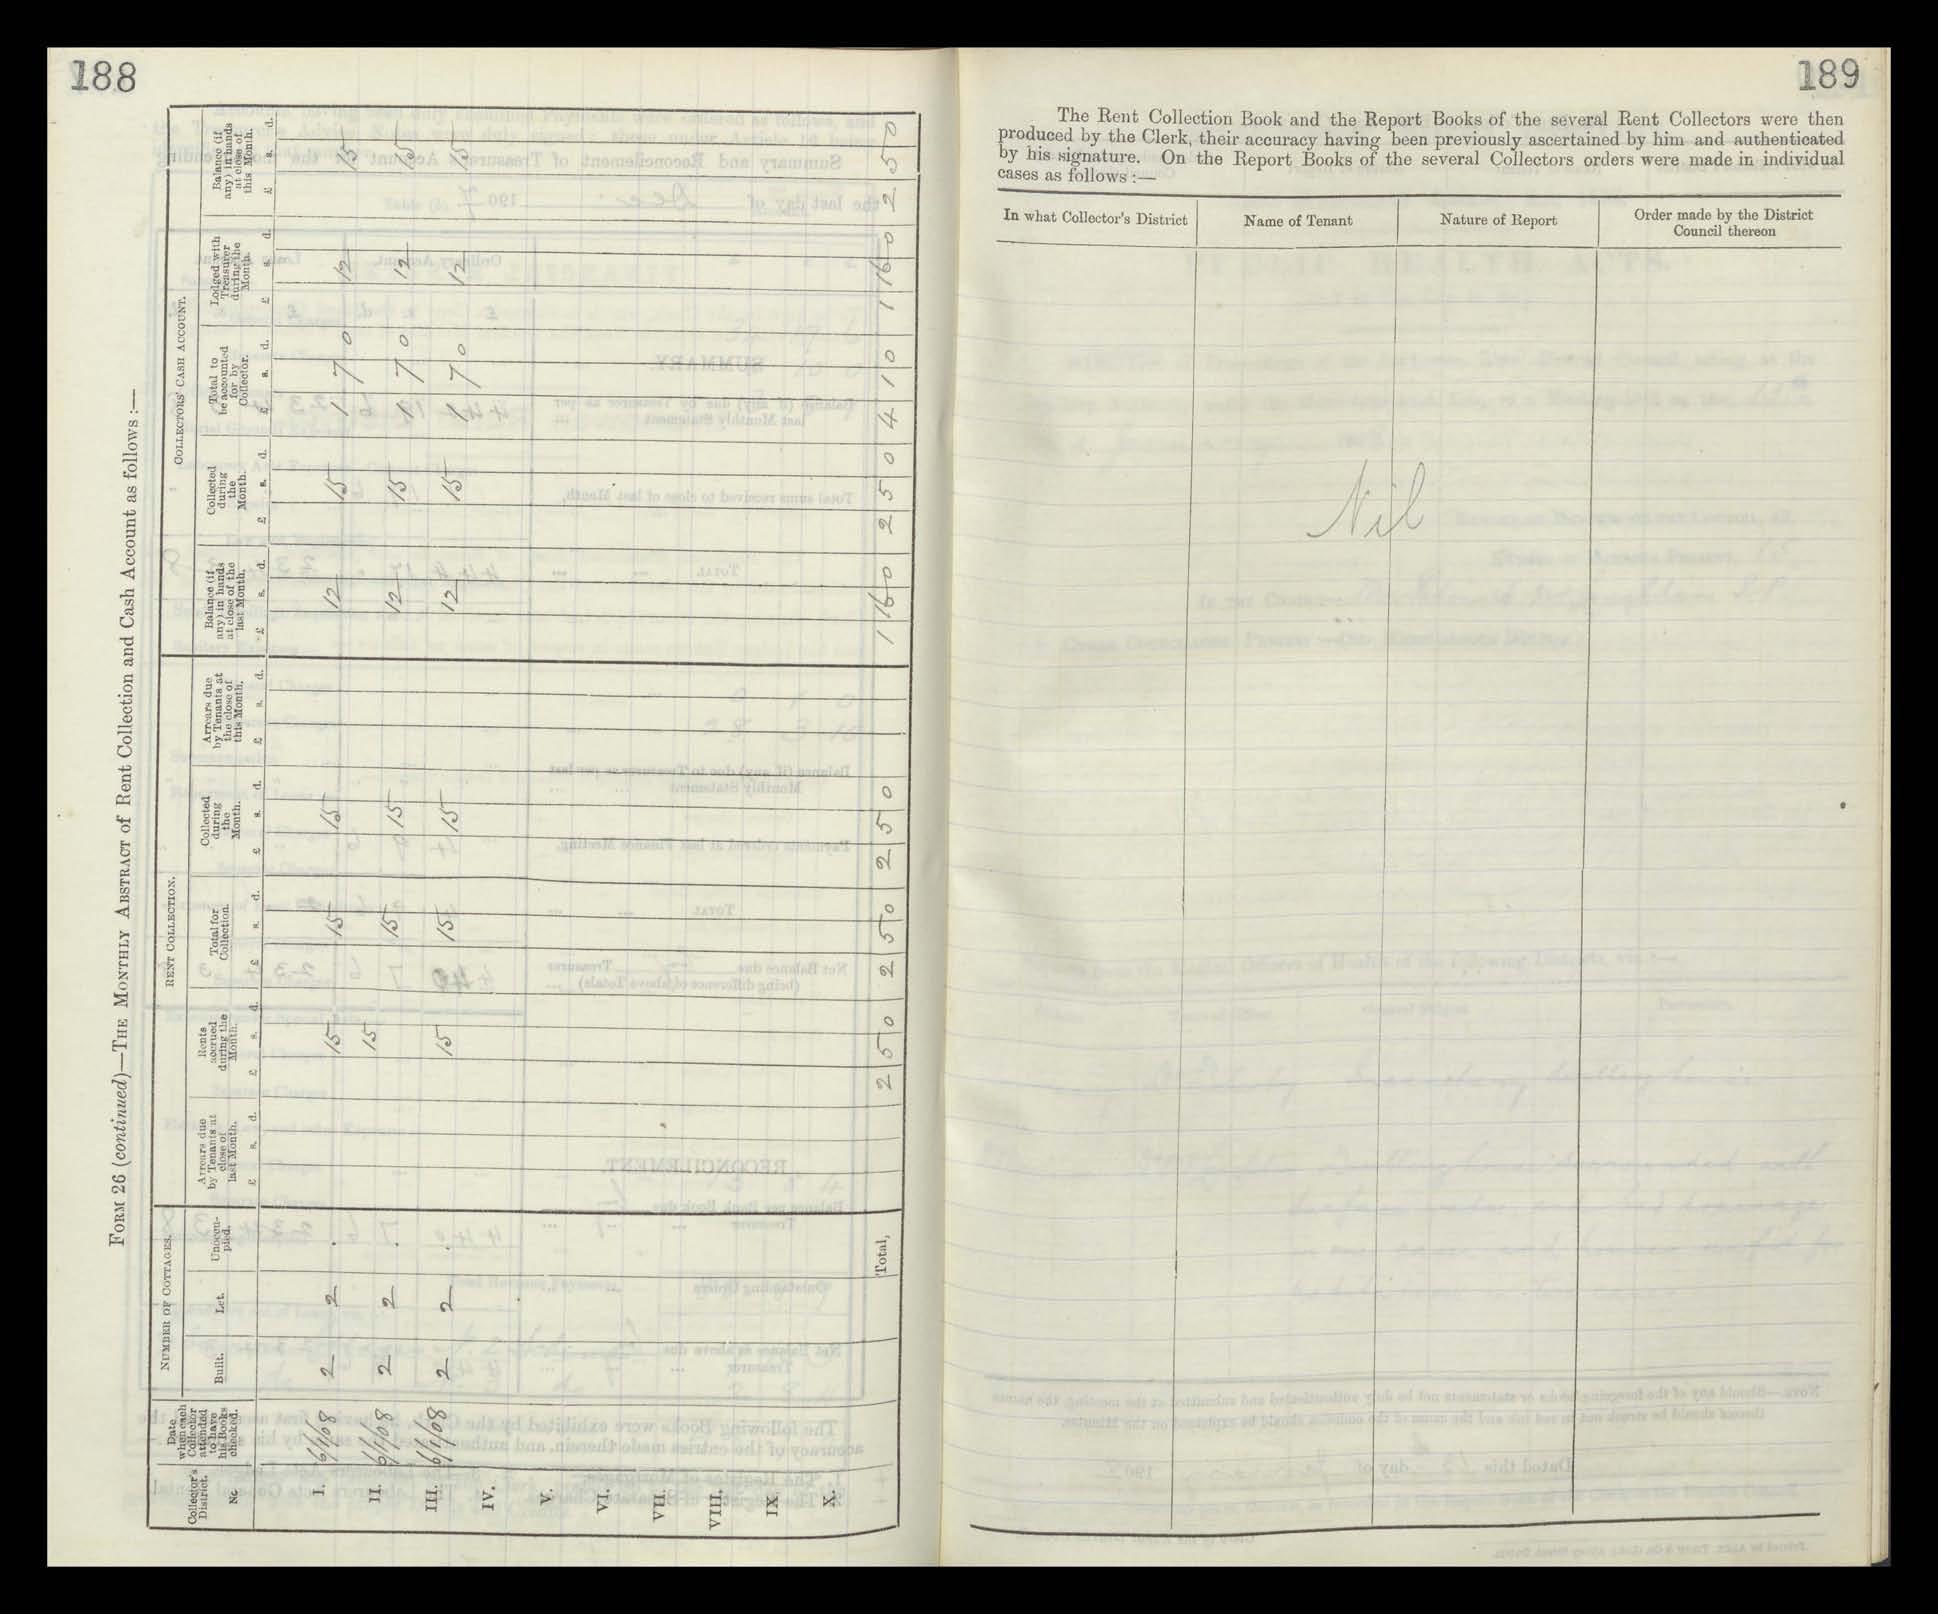 188
FORM 26 (continued)—THE MONTHLY ABSTRACT of Rent Collection and Cash Account as follows :—
NUMBER OF COTTAGES.
RENT COLLECTION.
COLLECTORS' CASH ACCOUNT.
Collector's District. No
Date when each Collector attended to have his Books checked.
Built.
Let.
Unoccupied.
Arrears due by Tenants at close of last Month.
Rents accrued during the Month.
Total for Collection.
Collected during the Month.
Arrears due by Tenants at the close of this Month.
Balance (if any) in hands at close of the last Month.
Collected during the Month.
Total to be accounted for by Collector.
Lodged with Treasurer during the Month.
Balance (if any) in hands at close of this Month.
£ s. d. £ s. d. £ s. d. £ s. d. £ s. d. £ s. d. £ s. d. £ s. d. £ s. d. £ s. d.
I. 6/1/08 2 2 . 15 15 15 12 15 1 7 0 12 15
II. 6/1/08 2 2 . 15 15 15 12 15 1 7 0 12 15
III. 6/1/08 2 2 . 15 15 15 12 15 1 7 0 12 15
IV.
V.
VI.
VII.
VIII.
IX.
X.
Total, 2 5 0 2 5 0 2 5 0 1 16 0 2 5 0 4 1 0 1 16 0 2 5 0
189
The Rent Collection Book and the Report Books of the several Rent Collectors were then
produced by the Clerk, their accuracy having been previously ascertained by him and authenticated
by his signature. On the Report Books of the several Collectors orders were made in individual
cases as follows :—
In what Collector's District
Name of Tenant
Nature of Report
Order made by the District
Council thereon
Nil